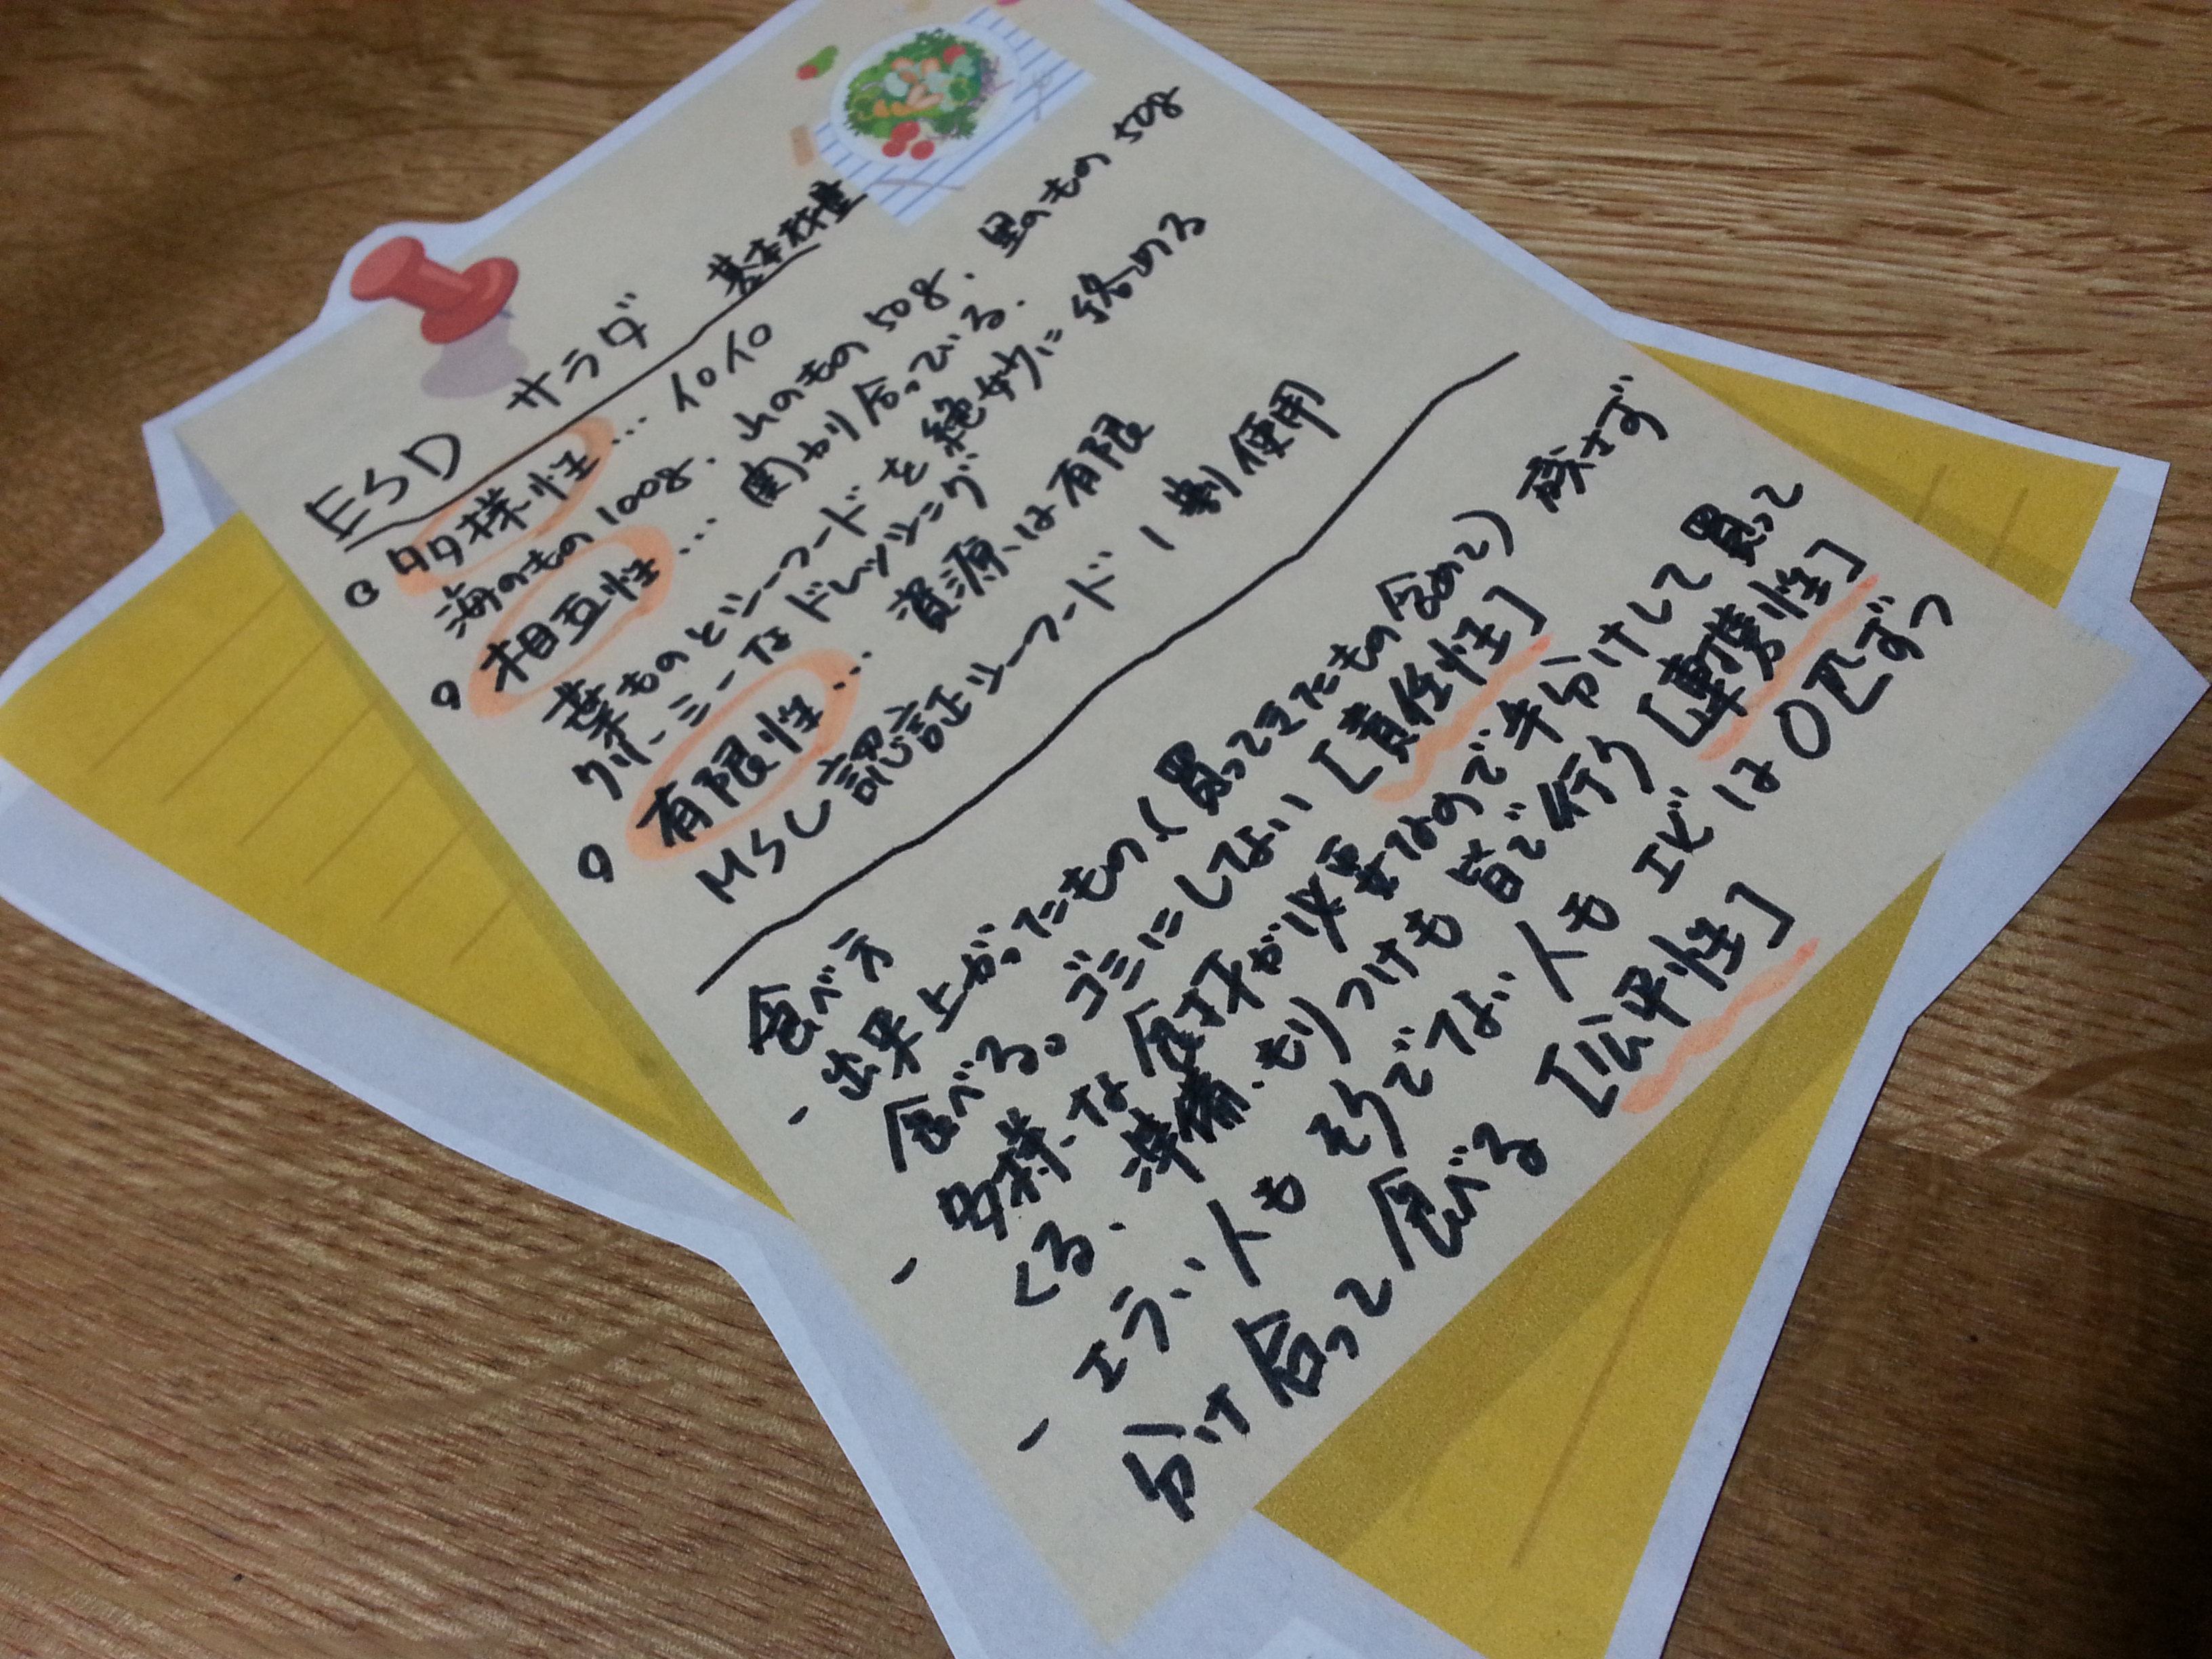 ESD サラダ 基本秤量
多様性… イロイロ
海のもの100g、山のもの50g、里のもの50g
相互性… 関わり合っている。
葉ものとシーフードを絶妙に絡める
クリーミーなドレッシング
有限性… 資源は有限
MSC認証シーフード1割使用
食べ方
- 出来上がったもの(買ってきたもの含めて)残さず
食べる。ゴミにしない[責任性]
- 多様な食材が必要なので手分けして買って
くる、準備、もりつけも皆で行う[連携性]
- エライ人もそうでない人もエビは〇匹ずつ
分け合って食べる[公平性]